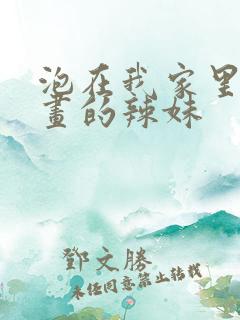 泡在我家里
畫的辣妹
鄧文勝
未经同意禁止转载